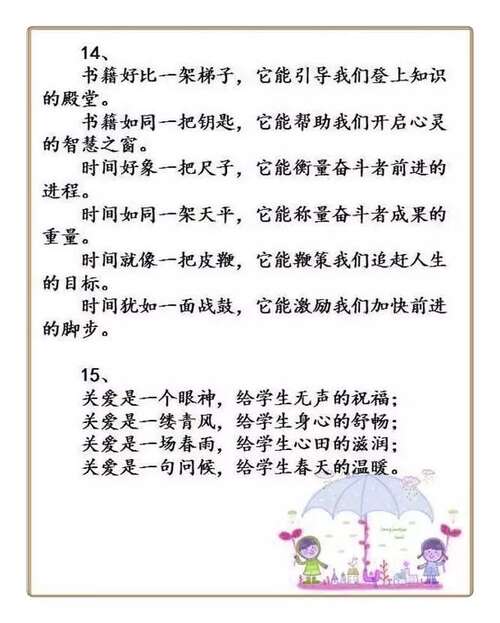 14、
书籍好比一架梯子，它能引导我们登上知识
的殿堂。
书籍如同一把钥匙，它能帮助我们开启心灵
的智慧之窗。
时间好象一把尺子，它能衡量奋斗者前进的
进程。
时间如同一架天平，它能称量奋斗者成果的
重量。
时间就像一把皮鞭，它能鞭策我们追赶人生
的目标。
时间犹如一面战鼓，它能激励我们加快前进
的脚步。
15、
关爱是一个眼神，给学生无声的祝福；
关爱是一缕青风，给学生身心的舒畅；
关爱是一场春雨，给学生心田的滋润；
关爱是一句问候，给学生春天的温暖。